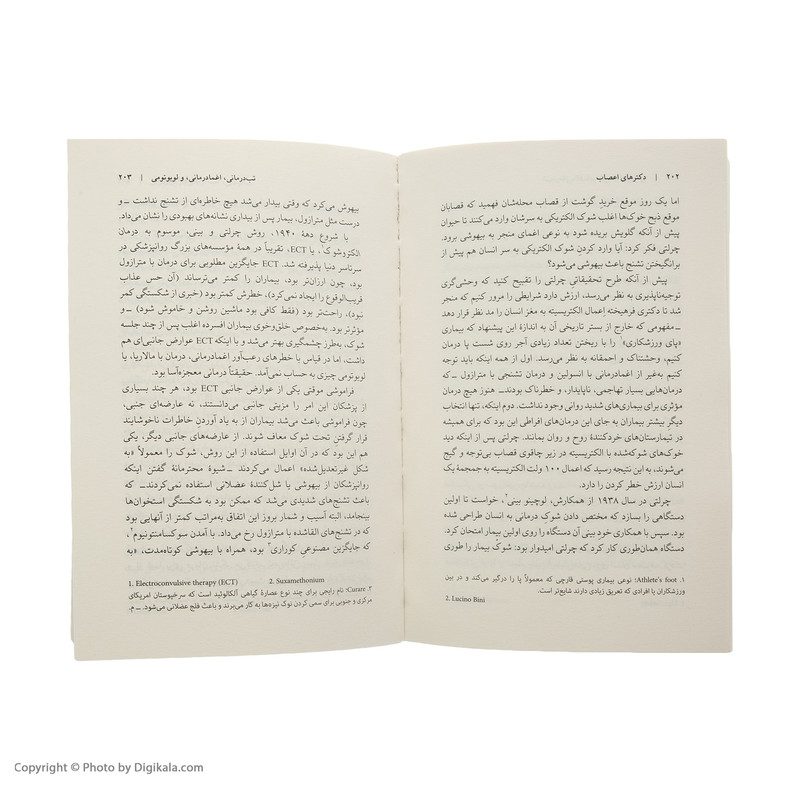 ۲۰۲ | دکترهای اعصاب
اما یک روز موقع خرید گوشت از قصاب محله‌شان فهمید که قصابان
موقع ذبح خوک‌ها اغلب شوک الکتریکی به سرشان وارد می‌کنند تا حیوان
پیش از آنکه گلویش بریده شود به نوعی اغمای منجر به بیهوشی برود.
چرلتی فکر کرد: آیا وارد کردن شوک الکتریکی به سر انسان هم پیش از
برانگیختن تشنج باعث بیهوشی می‌شود؟
پیش از آنکه طرح تحقیقاتی چرلتی را تقبیح کنید که وحشی‌گری
توجیه‌ناپذیری به نظر می‌رسد، ارزش دارد شرایطی را مرور کنیم که منجر
شد تا دکتری فرهیخته اِعمال الکتریسیته به مغز انسان را مد نظر قرار دهد
ــ مفهومی که خارج از بستر تاریخی آن به اندازهٔ این پیشنهاد که بیماری
«پای ورزشکاری»۱ را با ریختن تعداد زیادی آجر روی شست پا درمان
کنیم، وحشتناک و احمقانه به نظر می‌رسد. اول از همه اینکه باید توجه
کنیم به‌غیر از اغمادرمانی با انسولین و درمان تشنجی با مترازول ــ که
درمان‌هایی بسیار تهاجمی، ناپایدار، و خطرناک بودند ــ هنوز هیچ درمان
مؤثری برای بیماری‌های شدید روانی وجود نداشت. دوم اینکه، تنها انتخاب
دیگر بیشتر بیماران به جای این درمان‌های افراطی این بود که برای همیشه
در تیمارستان‌های خردکنندهٔ روح و روان بمانند. چرلتی پس از اینکه دید
خوک‌های شوکه‌شده با الکتریسیته در زیر چاقوی قصاب بی‌توجه و گیج
می‌شوند، به این نتیجه رسید که اعمال ۱۰۰ ولت الکتریسیته به جمجمهٔ یک
انسان ارزش خطر کردن را دارد.
چرلتی در سال ۱۹۳۸ از همکارش، لوچینو بینی۲، خواست تا اولین
دستگاهی را بسازد که مختص دادن شوک درمانی به انسان طراحی شده
بود. سپس با همکاری خود بینی آن دستگاه را روی اولین بیمار امتحان کرد.
دستگاه همان‌طوری کار کرد که چرلتی امیدوار بود: شوک بیمار را طوری
۱. Athlete's foot: نوعی بیماری پوستی قارچی که معمولاً پا را درگیر می‌کند و در بین
ورزشکاران یا افرادی که تعریق زیادی دارند شایع‌تر است.
2. Lucino Bini
تب‌درمانی، اغمادرمانی، و لوبوتومی | ۲۰۳
بیهوش می‌کرد که وقتی بیدار می‌شد هیچ خاطره‌ای از تشنج نداشت ــ و
درست مثل مترازول، بیمار پس از بیداری نشانه‌های بهبودی را نشان می‌داد.
با شروع دههٔ ۱۹۴۰، روش چرلتی و بینی، موسوم به درمان
الکتروشوک۱، یا ECT، تقریباً در همهٔ مؤسسه‌های بزرگ روانپزشکی در
سرتاسر دنیا پذیرفته شد. ECT جایگزین مطلوبی برای درمان با مترازول
بود، چون ارزان‌تر بود، بیماران را کمتر می‌ترساند (آن حس عذاب
قریب‌الوقوع را ایجاد نمی‌کرد)، خطرش کمتر بود (خبری از شکستگی کمر
نبود)، راحت‌تر بود (فقط کافی بود ماشین روشن و خاموش شود) ــ و
مؤثرتر بود. به‌خصوص خلق‌وخوی بیماران افسرده اغلب پس از چند جلسه
شوک، به‌طرز چشمگیری بهتر می‌شد و با اینکه ECT عوارض جانبی‌ای هم
داشت، اما در قیاس با خطرهای رعب‌آور اغمادرمانی، درمان با مالاریا، یا
لوبوتومی چیزی به حساب نمی‌آمد. حقیقتاً درمانی معجزه‌آسا بود.
فراموشی موقتی یکی از عوارض جانبی ECT بود، هر چند بسیاری
از پزشکان این امر را مزیتی جانبی می‌دانستند، نه عارضه‌ای جنبی،
چون فراموشی باعث می‌شد بیماران از به یاد آوردن خاطرات ناخوشایند
قرار گرفتن تحت شوک معاف شوند. از عارضه‌های جانبی دیگر، یکی
هم این بود که در آن اوایل استفاده از این روش، شوک را معمولاً «به
شکل غیرتعدیل‌شده» اعمال می‌کردند ــ شیوهٔ محترمانهٔ گفتن اینکه
روانپزشکان از بیهوشی یا شل‌کنندهٔ عضلانی استفاده نمی‌کردند ــ که
باعث تشنج‌های شدیدی می‌شد که ممکن بود به شکستگی استخوان‌ها
بینجامد، البته آسیب و شمار بروز این اتفاق به‌مراتب کمتر از آنهایی بود
که در تشنج‌های القاشده با مترازول رخ می‌داد. با آمدن سوکسامتونیوم۲،
که جایگزین مصنوعی کوراری۳ بود، همراه با بیهوشی کوتاه‌مدت، «به
1. Electroconvulsive therapy (ECT) 2. Suxamethonium
۳. Curare: نام رایجی برای چند نوع عصارهٔ گیاهی آلکالوئید است که سرخپوستان امریکای
مرکزی و جنوبی برای سمی کردن نوک نیزه‌ها به کار می‌برند و باعث فلج عضلانی می‌شود. ــ م.
Copyright © Photo by Digikala.com